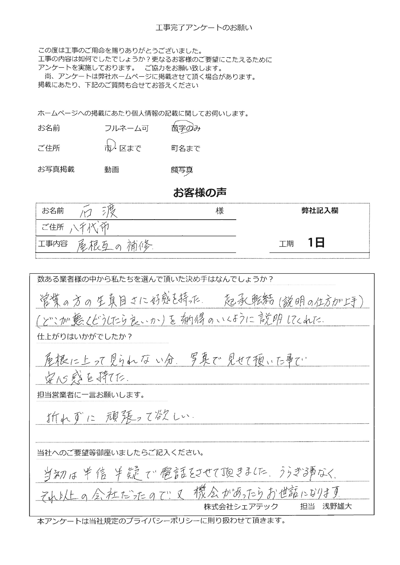 工事完了アンケートのお願い
この度は工事のご用命を賜りありがとうございました。
工事の内容は如何でしたでしょうか?更なるお客様のご要望にこたえるために
アンケートを実施しております。 ご協力をお願い致します。
尚、アンケートは弊社ホームページに掲載させて頂く場合があります。
掲載にあたり、下記のご質問も合せてお答えください
ホームページへの掲載にあたり個人情報の記載に関してお伺いします。
お名前 フルネーム可 苗字のみ
ご住所 市・区まで 町名まで
お写真掲載 動画 顔写真
お客様の声
お名前 石渡 様 弊社記入欄
ご住所 八千代市
工事内容 屋根瓦の補修 工期 1日
数ある業者様の中から私たちを選んで頂いた決め手はなんでしょうか?
営業の方の生真目さに好感を持った。 起承転結(説明の仕方が上手)
(どこが悪くどうしたら良いか)を納得のいくように説明してくれた。
仕上がりはいかがでしたか?
屋根に上って見られない分、写真で見せて頂いた事で
安心感を持てた。
担当営業者に一言お願いします。
折れずに頑張って欲しい。
当社へのご要望等御座いましたらご記入ください。
当初は半信半疑で電話をさせて頂きました。うらぎる事なく、
それ以上の会社だったので又機会があったらお世話になります
株式会社シェアテック 担当 浅野雄大
本アンケートは当社規定のプライバシーポリシーに則り扱わせて頂きます。